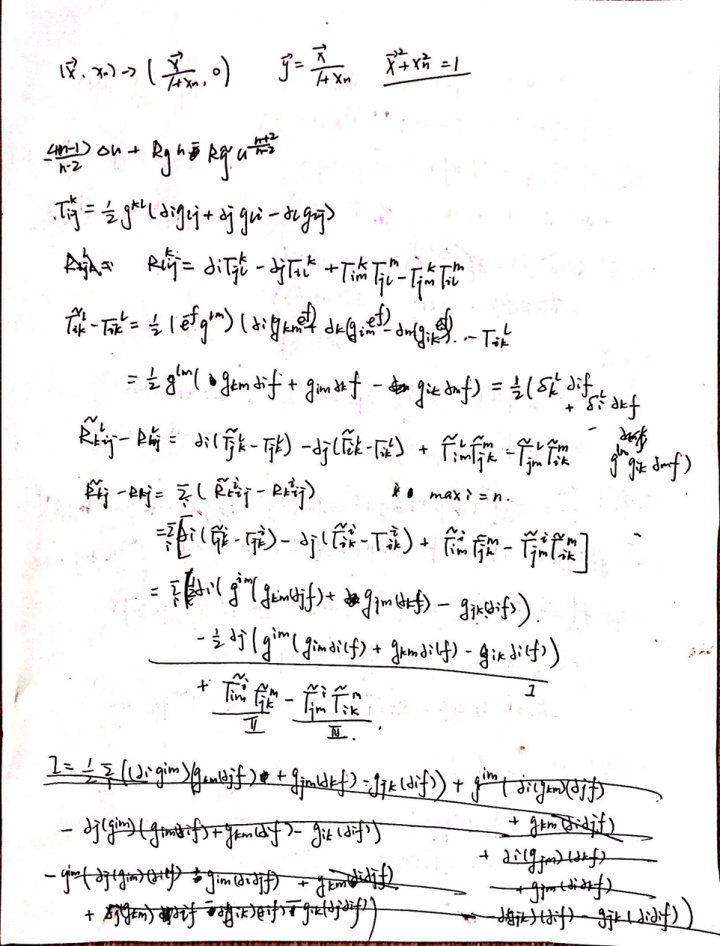 (x⃗, xn) → ( x⃗/1+xn, 0)   y⃗ = x⃗/1+xn   x⃗²+xn² = 1
-4(n-1)/n-2 Δu + Rg u = Rg̃ u^{n+2/n-2}
T_{ij}^k = ½ g^{kl} (∂i g_{lj} + ∂j g_{li} - ∂l g_{ij})
R_{lij}^k = ∂i T_{jl}^k - ∂j T_{il}^k + T_{im}^k T_{jl}^m - T_{jm}^k T_{il}^m
T̃_{ik}^l - T_{ik}^l = ½ (e^{-f} g^{lm}) (∂i(g_{km} e^f) + ∂k(g_{im} e^f) - ∂m(g_{ik} e^f)) - T_{ik}^l
= ½ g^{lm} ( g_{km} ∂i f + g_{im} ∂k f - g_{ik} ∂m f) = ½ (δ_k^l ∂i f + δ_i^l ∂k f - g^{lm} g_{ik} ∂m f)
R̃_{kij}^l - R_{kij}^l = ∂i (T̃_{jk}^l - T_{jk}^l) - ∂j (T̃_{ik}^l - T_{ik}^l) + T̃_{im}^l T̃_{jk}^m - T̃_{jm}^l T̃_{ik}^m
R̃_{kj} - R_{kj} = Σ_i ( R̃_{kij}^i - R_{kij}^i )   max i = n.
= Σ_i [∂i (T̃_{jk}^i - T_{jk}^i) - ∂j (T̃_{ik}^i - T_{ik}^i) + T̃_{im}^i T̃_{jk}^m - T̃_{jm}^i T̃_{ik}^m]
= Σ_i [½ ∂i ( g^{im} (g_{km}(∂j f) + g_{jm}(∂k f) - g_{jk}(∂i f)).
- ½ ∂j (g^{im} (g_{im} ∂i(f) + g_{km} ∂i(f) - g_{ik} ∂i(f))
I
+ T̃_{im}^i T̃_{jk}^m - T̃_{jm}^i T̃_{ik}^m
II   III.
I = ½ Σ_i ((∂i g^{im})(g_{km}(∂j f) + g_{jm}(∂k f) - g_{jk}(∂i f)) + g^{im} ( ∂i(g_{km})(∂j f)
- ∂j(g^{im}) (g_{im} ∂i f) + g_{km}(∂i f) - g_{ik} (∂i f))   + g_{km} (∂i∂j f)
+ ∂i(g_{jm})(∂k f)
- g^{im} ( ∂j(g_{im})(∂i f) + g_{im}(∂i∂j f) + g_{km}(∂i∂j f)   + g_{jm}(∂i∂k f)
g_{ik}(∂j∂i f))   - ∂i(g_{jk})(∂i f) - g_{jk}(∂i∂i f))